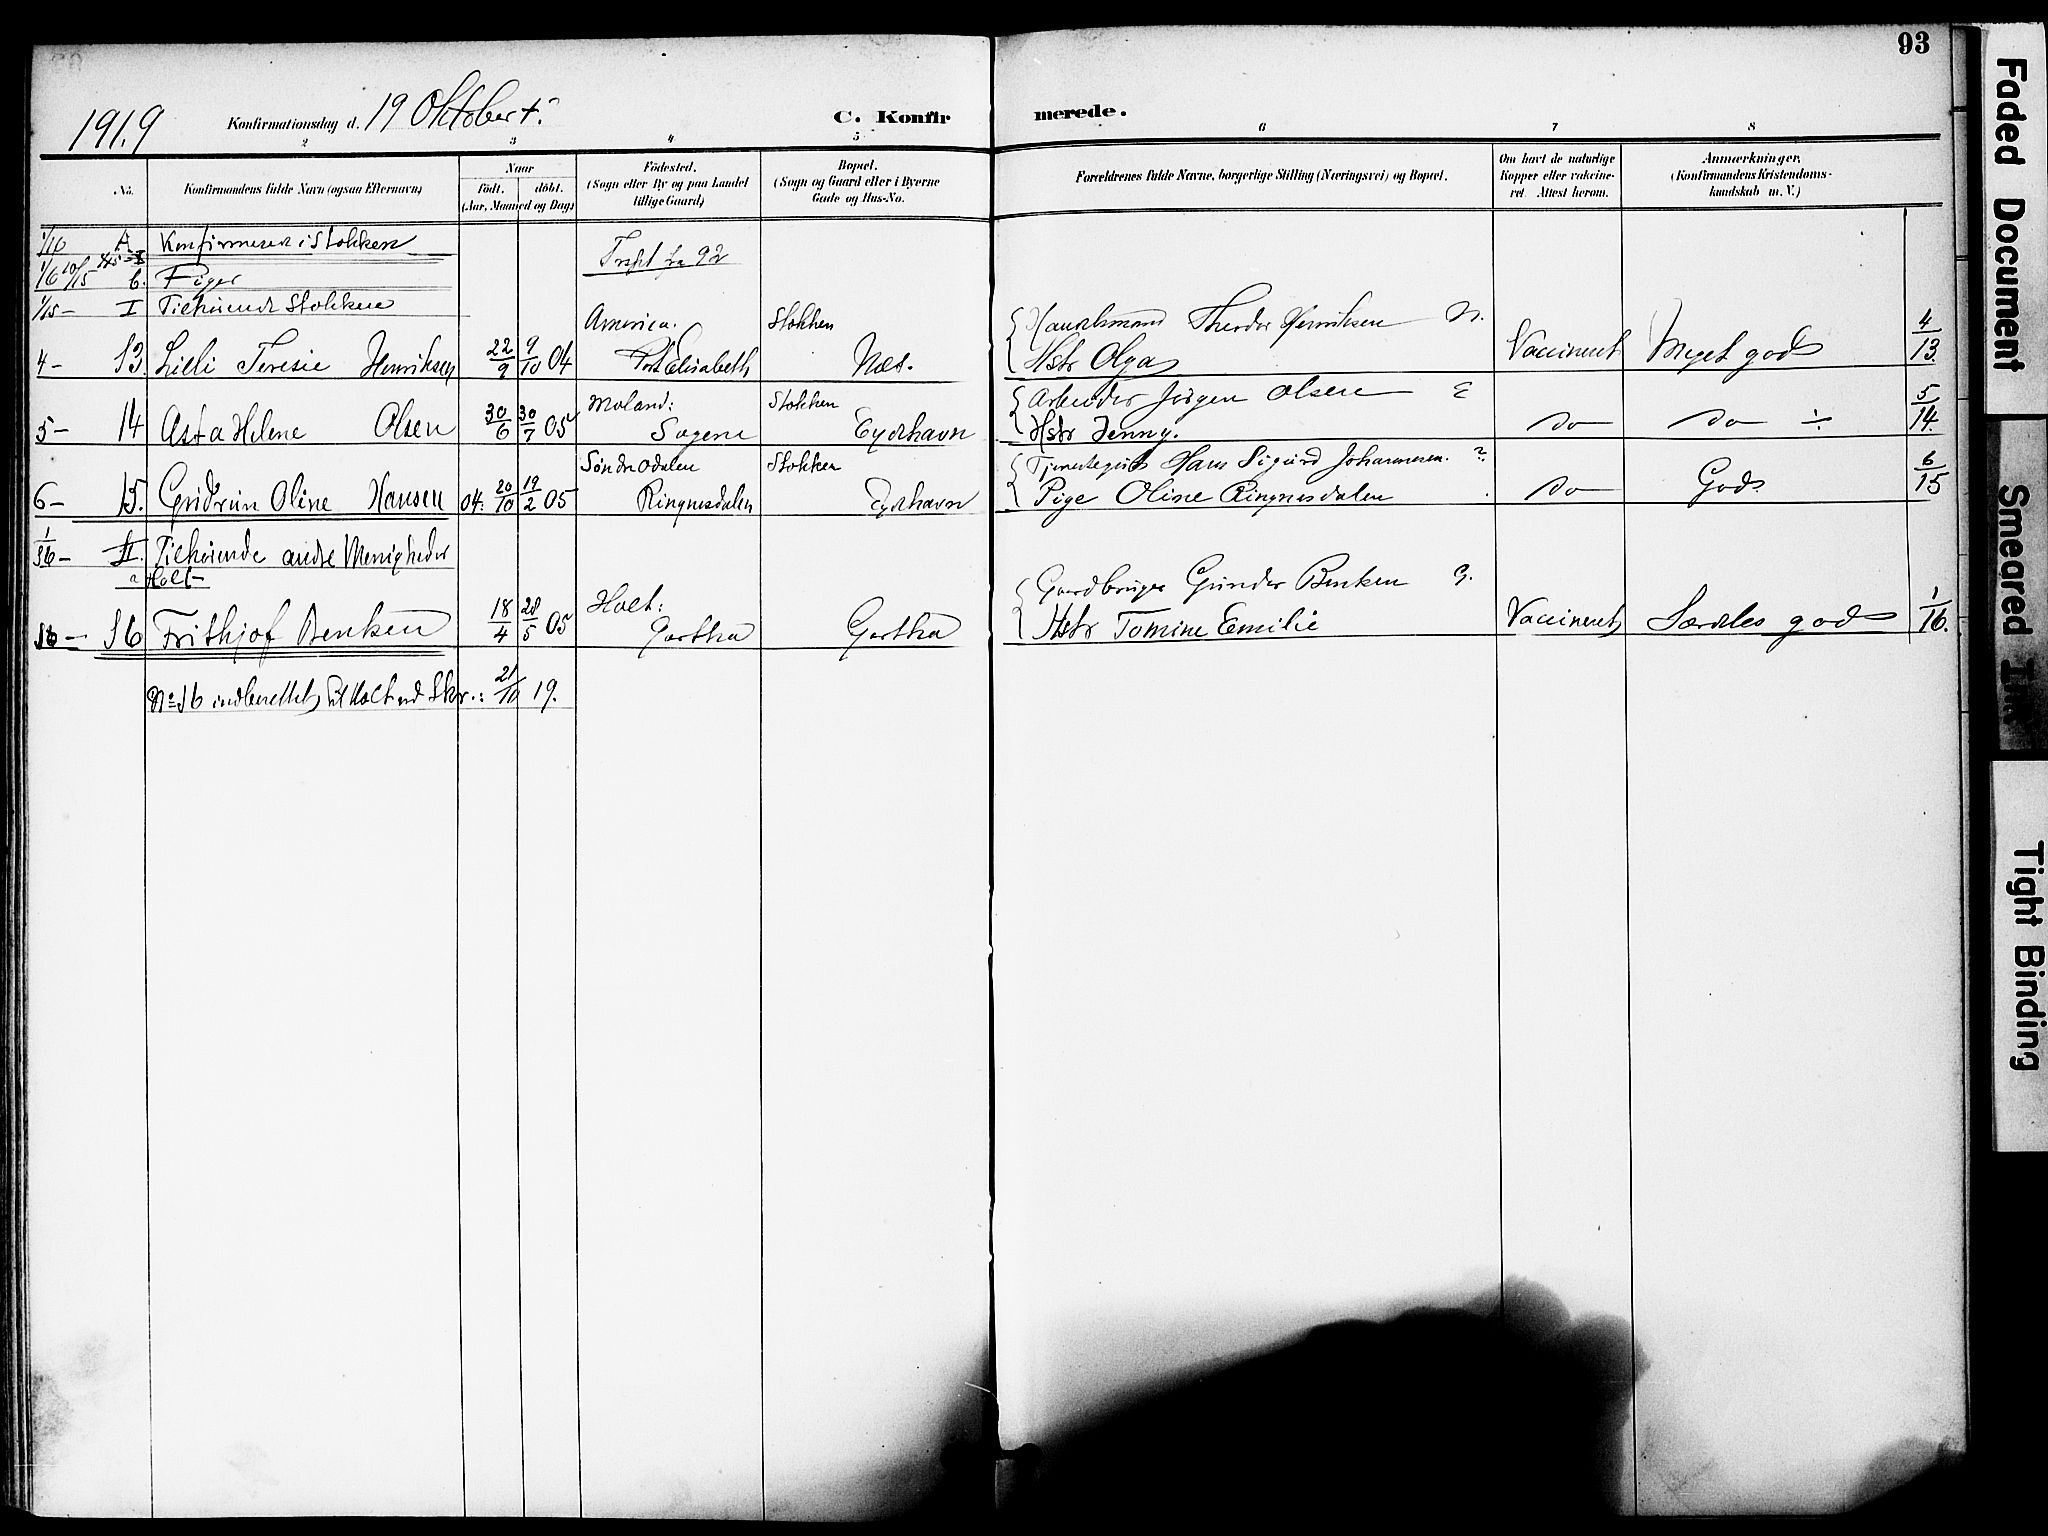 93
1919 Konfirmationsdag d. 19 Oktober C. Konfirmerede.
2 3 4 5 6 7 8
No.
Konfirmandens fulde Navn (ogsaa Efternavn)
Naar
født. døbt.
(Aar, Maaned og Dag)
Fødested.
(Sogn eller By og paa Landet
tillige Gaard)
Bopæl.
(Sogn og Gaard eller i Byerne
Gade og Hus-No.
Forældrenes fulde Navne, borgerlige Stilling (Næringsvei) og Bopæl.
Om havt de naturlige
Kopper eller vakcine-
ret Attest herom.
Anmærkninger.
(Konfirmandens Kristendoms-
kundskab m. V.)
1/16 A Konfirmeret i Stokken
b. Piger
1/15 - I Tilhørende Stokken
fra 92
America. Stokken { Handelsmand Theodor Henriksen N. 4
4 - 13. Lilli Teresie Henriksen 22/9 9/10 04 Port Elisabeth Næs. Hstr Olga Vaccineret Meget god 13.
Moland: Stokken { Arbeider Jørgen Olsen E 5
5 - 14 Asta Helene Olsen 30/6 30/7 05 Sagene Eydehavn Hstr Jenny. do do ÷ 14.
Søndre Odalen Stokken { Tjenestegut Hans Sigurd Johannesen. ? 6
6 - 15. Gudrun Oline Hansen 04. 20/10 19/2 05 Ringnesdalen Eydehavn Pige Oline Ringnesdalen do God 15
1/16 - II. Tilhørende andre Menigheder
a Holt
Holt: { Gaardbruger Gunder Benken G. 1
16 - 16 Frithjof Benken 18/4 28/5 05 Gartha Gartha Hstr Tomine Emilie Vaccineret Særdeles god 16.
No 16 indberettet til Holt ved Skr.: 21/10 19.
Faded Document
Smeared Ink
Tight Binding